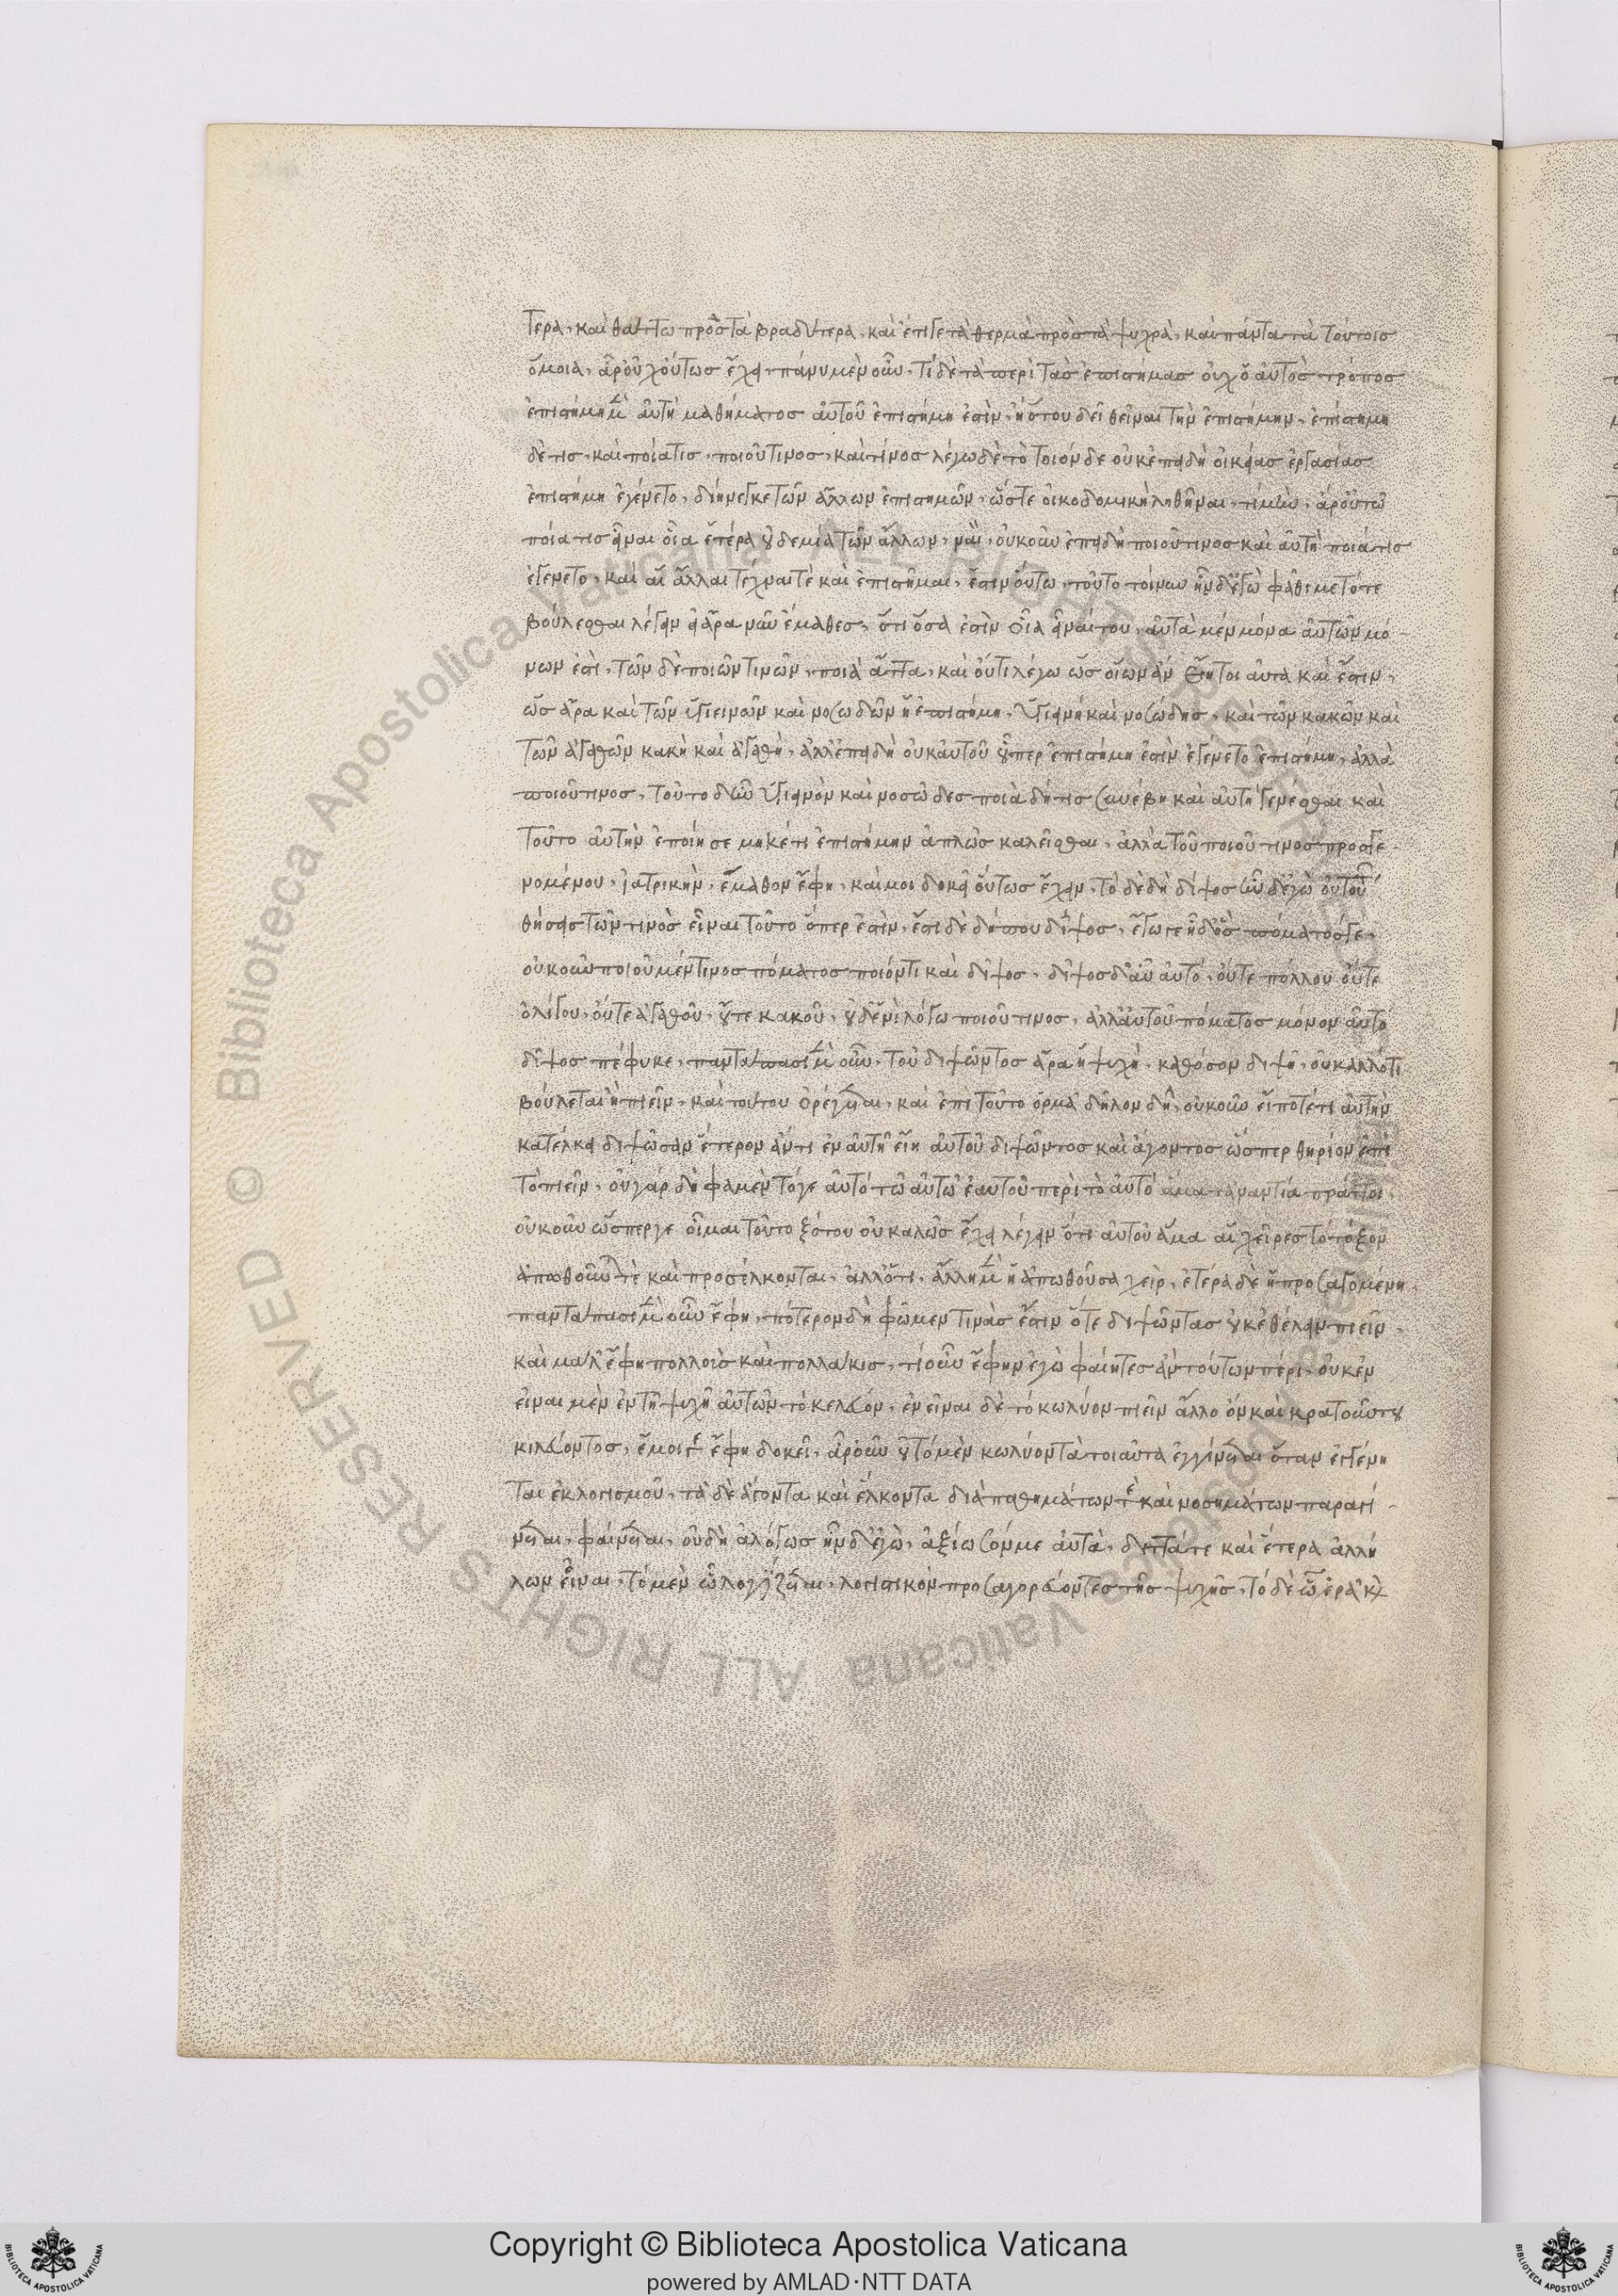 τερα, καὶ θάττω πρὸς τὰ βραδύτερα, καὶ ἔτι γε τὰ θερμὰ πρὸς τὰ ψυχρὰ, καὶ πάντα τὰ τούτοις
ὅμοια, ἆρ' οὐχ οὕτως ἔχει, πάνυ μὲν οὖν, τί δὲ τὰ περὶ τὰς ἐπιστήμας οὐχ ὁ αὐτὸς τρόπος
ἐπιστήμη μὲν αὐτὴ μαθήματος αὐτοῦ ἐπιστήμη ἐστὶν, ἢ ὅτου δεῖ θεῖναι τὴν ἐπιστήμην, ἐπιστήμη
δέ τις, καὶ ποία τις, ποιοῦ τινος, καὶ τίνος λέγω δὲ τὸ τοιόνδε οὐκ ἐπειδὴ οἰκίας ἐργασίας
ἐπιστήμη ἐγένετο, διήνεγκε τῶν ἄλλων ἐπιστημῶν, ὥστε οἰκοδομικὴ κληθῆναι, τί μὴν, ἆρ' οὐ τῷ
ποία τις εἶναι οἵα ἑτέρα οὐδεμία τῶν ἄλλων, ναὶ, οὐκοῦν ἐπειδὴ ποιοῦ τινος καὶ αὐτὴ ποιά τις
ἐγένετο, καὶ αἱ ἄλλαι τέχναι τὲ καὶ ἐπιστῆμαι, ἔστιν οὕτω, τοῦτο τοίνυν ἦν δ' ἐγὼ φάθι με τότε
βούλεσθαι λέγειν εἰ ἄρα νῦν ἔμαθες, ὅτι ὅσα ἐστὶν οἷα εἶναί του, αὐτὰ μὲν μόνα αὐτῶν μό-
νων ἐστὶ, τῶν δὲ ποιῶν τινῶν, ποιὰ ἄττα, καὶ οὔ τι λέγω ὡς οἵων ἂν ᾖ τοιαῦτα καὶ ἔστιν,
ὡς ἄρα καὶ τῶν ὑγιεινῶν καὶ νοσωδῶν ἡ ἐπιστήμη, ὑγιεινὴ καὶ νοσώδης, καὶ τῶν κακῶν καὶ
τῶν ἀγαθῶν κακὴ καὶ ἀγαθὴ, ἀλλ' ἐπειδὴ οὐκ αὐτοῦ οὗπερ ἐπιστήμη ἐστὶν ἐγένετο ἐπιστήμη, ἀλλὰ
ποιοῦ τινος, τοῦτο δ' ἦν ὑγιεινὸν καὶ νοσῶδες ποιὰ δή τις συνέβη καὶ αὐτὴ γενέσθαι καὶ
τοῦτο αὐτὴν ἐποίησε μηκέτι ἐπιστήμην ἁπλῶς καλεῖσθαι, ἀλλὰ τοῦ ποιοῦ τινος προσγε-
νομένου, ἰατρικὴν, ἔμαθον ἔφη, καί μοι δοκεῖ οὕτως ἔχειν, τὸ δὲ δὴ δίψος ἦν δ' ἐγὼ οὐ τού
θήσεις τῶν τινὸς εἶναι τοῦτο ὅπερ ἐστὶν, ἔστι δὲ δήπου δίψος, ἔγωγε ἦ δ' ὃς πόματός γε,
οὐκοῦν ποιοῦ μέν τινος πόματος ποιόν τι καὶ δίψος, δίψος δ' αὖ αὐτὸ, οὔτε πολλοῦ οὔτε
ὀλίγου, οὔτε ἀγαθοῦ, οὔτε κακοῦ, οὐδ' ἑνὶ λόγῳ ποιοῦ τινος, ἀλλ' αὐτοῦ πόματος μόνον αὐτὸ
δίψος πέφυκε, παντάπασι μὲν οὖν, τοῦ διψῶντος ἄρα ἡ ψυχὴ, καθόσον διψῇ, οὐκ ἄλλό τι
βούλεται ἢ πιεῖν, καὶ τούτου ὀρέγεται, καὶ ἐπὶ τοῦτο ὁρμᾷ δῆλον δὴ, οὐκοῦν εἴ ποτέ τι αὐτὴν
καθέλκει διψῶσαν ἕτερον ἄν τι ἐν αὐτῇ εἴη αὐτοῦ διψῶντος καὶ ἄγοντος ὥσπερ θηρίον ἐπὶ
τὸ πιεῖν, οὐ γὰρ δή φαμὲν τό γε αὐτὸ τῷ αὐτῷ ἑαυτοῦ περὶ τὸ αὐτὸ ἅμα τἀναντία πράττοι,
οὐκοῦν ὥσπερ γε οἶμαι τοῦ τοξότου οὐ καλῶς ἔχει λέγειν ὅτι αὐτοῦ ἅμα αἱ χεῖρες τὸ τόξον
ἀπωθοῦνταί τὲ καὶ προσέλκονται, ἀλλ' ὅτι, ἄλλη μὲν ἡ ἀπωθοῦσα χεὶρ, ἑτέρα δὲ ἡ προσαγομένη,
παντάπασι μὲν οὖν ἔφη, πότερον δὴ φῶμεν τινὰς ἔστιν ὅτε διψῶντας οὐκ ἐθέλειν πιεῖν,
καὶ μάλ' ἔφη πολλοὺς καὶ πολλάκις, τί οὖν ἔφην ἐγὼ φαίη τις ἂν τούτων πέρι, οὐκ ἐν
εἶναι μὲν ἐν τῇ ψυχῇ αὐτῶν τὸ κελεῦον, ἐνεῖναι δὲ τὸ κωλύον πιεῖν ἄλλο ὂν καὶ κρατοῦν τοῦ
κελεύοντος, ἔμοιγε ἔφη δοκεῖ, ἆρ' οὖν οὐ τὸ μὲν κωλύον τὰ τοιαῦτα ἐγγίνεται ὅταν ἐγγένη-
ται ἐκ λογισμοῦ, τὰ δὲ ἄγοντα καὶ ἕλκοντα διὰ παθημάτων τὲ καὶ νοσημάτων παραγί-
νεται, φαίνεται, οὐ δὴ ἀλόγως ἦν δ' ἐγὼ, ἀξιώσομεν αὐτὰ, διττά τε καὶ ἕτερα ἀλλή-
λων εἶναι, τὸ μὲν ᾧ λογίζεται, λογιστικὸν προσαγορεύοντες τῆς ψυχῆς, τὸ δὲ ᾧ ἐρᾷ καὶ
Copyright © Biblioteca Apostolica Vaticana
powered by AMLAD·NTT DATA